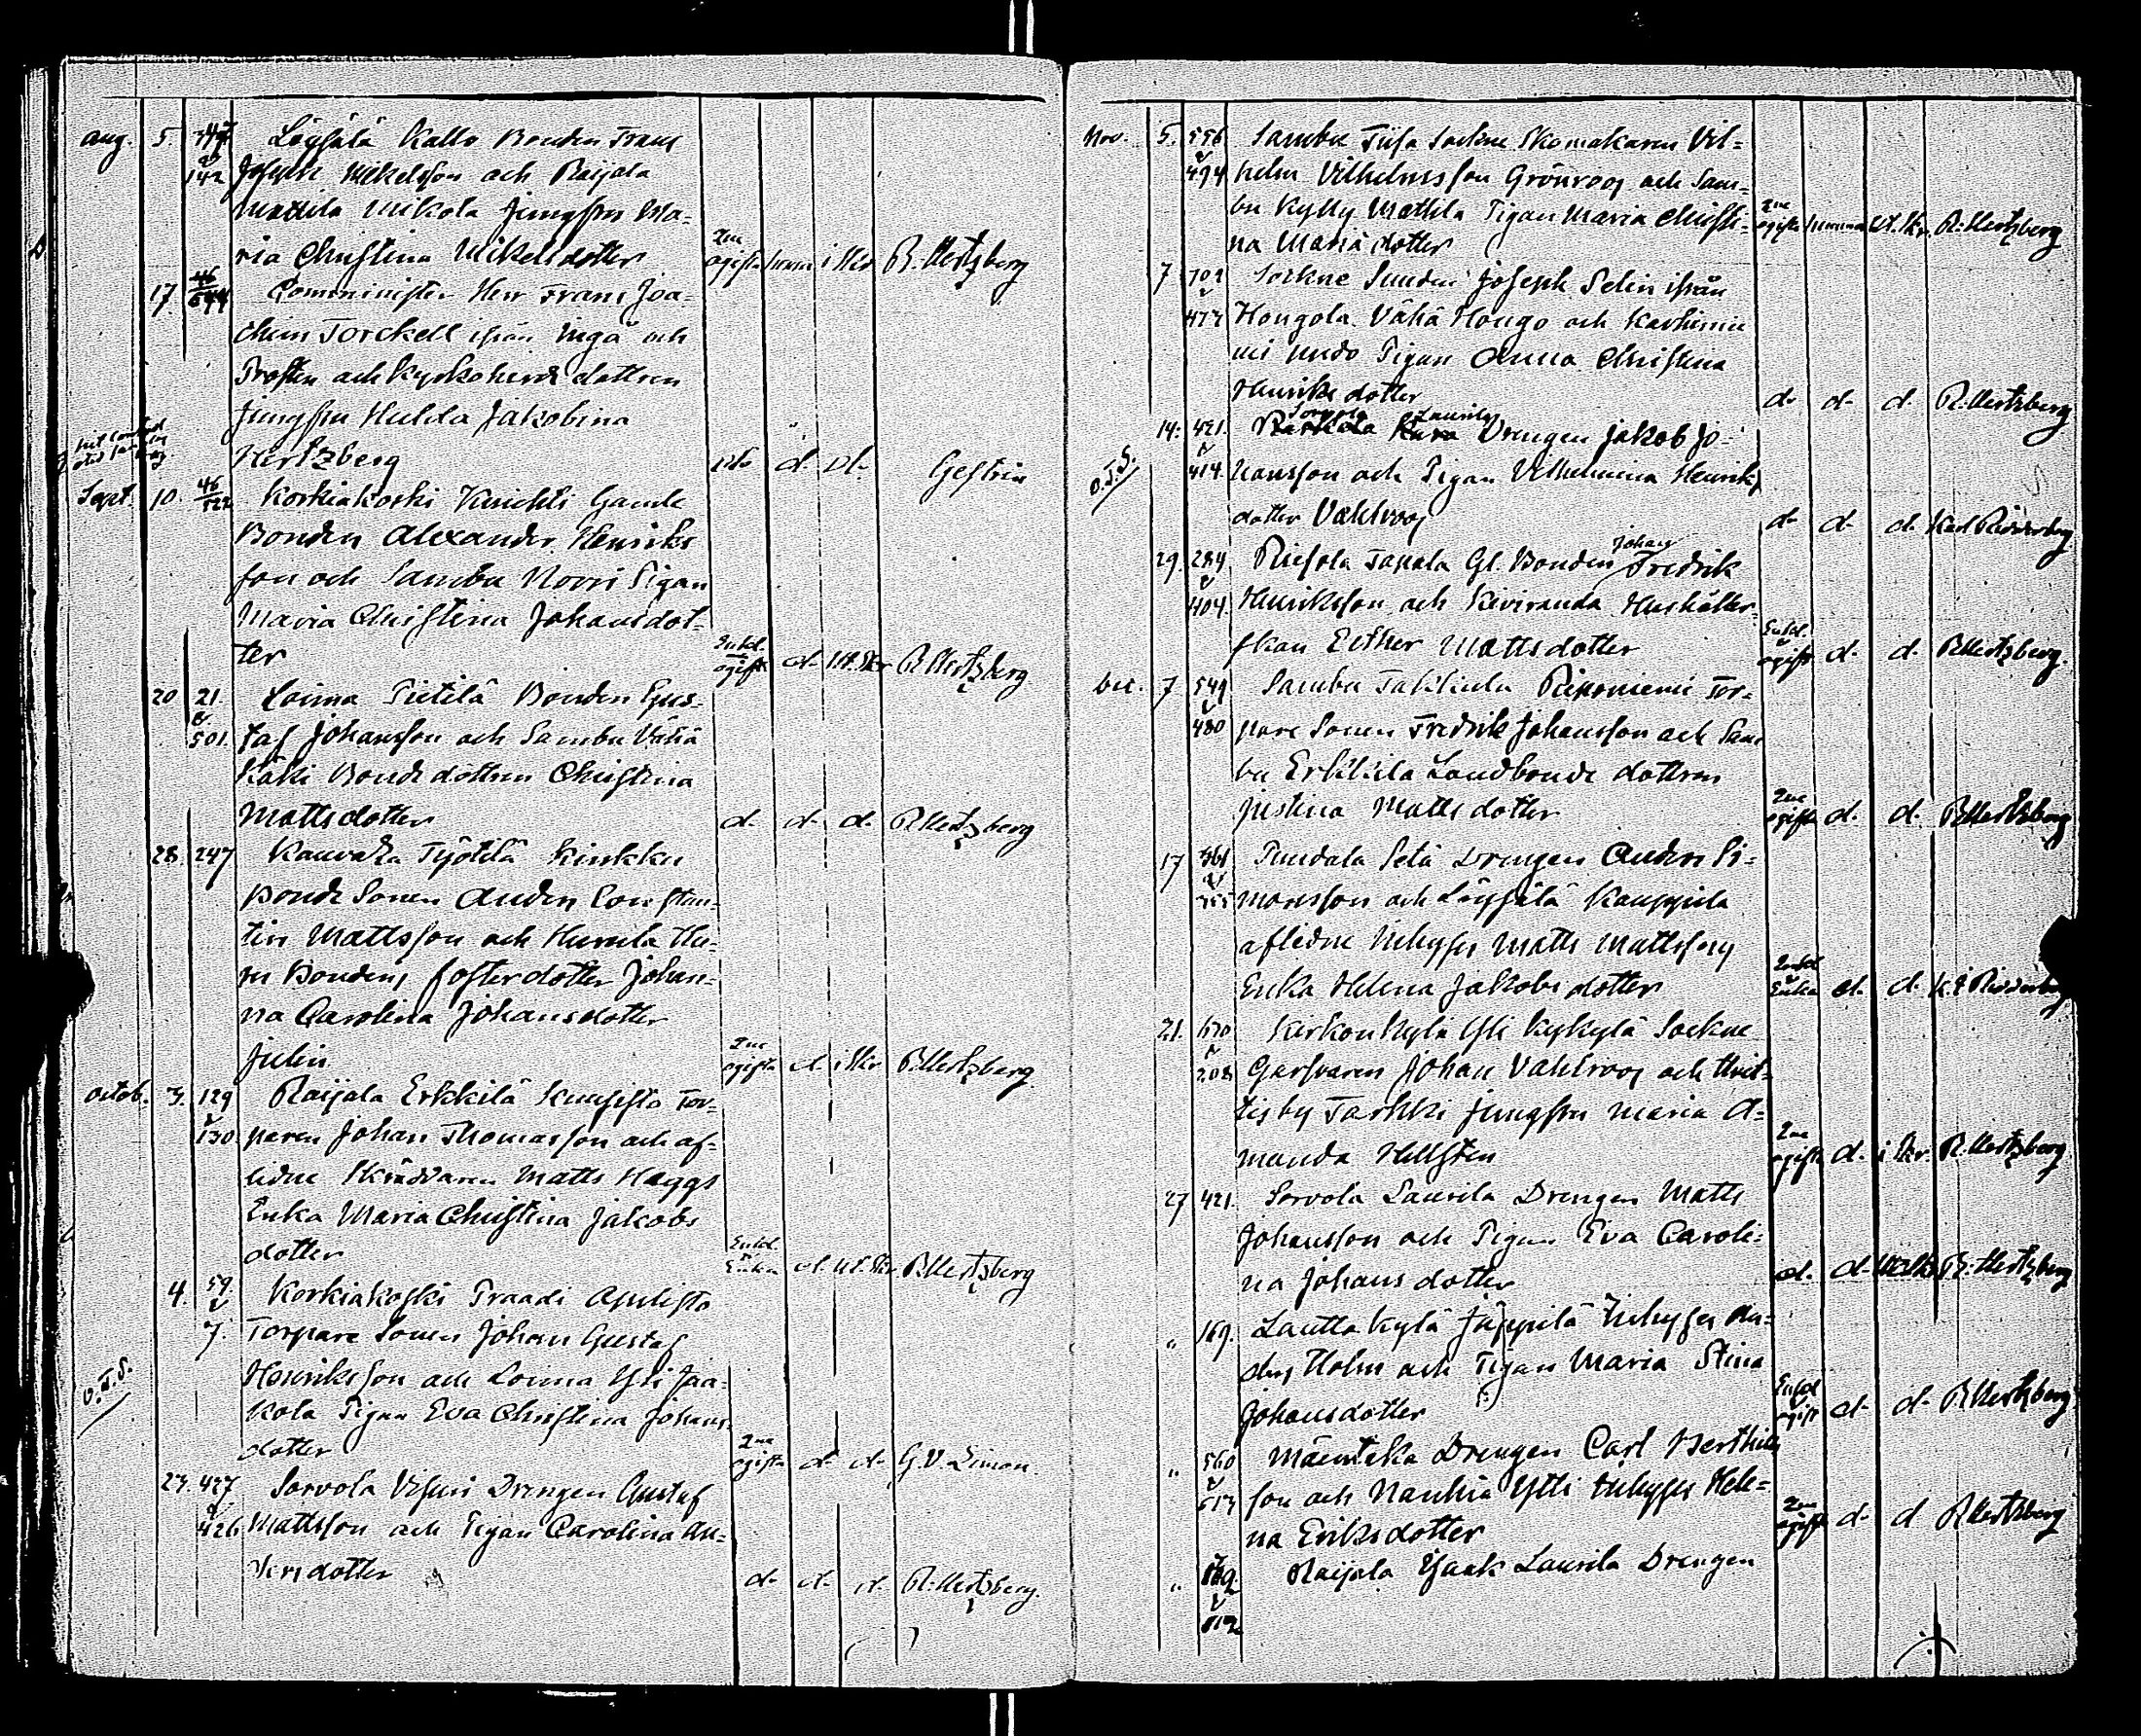 Aug. 5. 147 Löysälä Kallo Bonden Frans
& 142 Joseph Mikelsson och Raijala
Mattila Mikola Jungfru Ma-
ria Christina Mikelsdotter 2ne ogifta hemma i Skr R. Hertzberg
17. 46/644 Comminister Herr Frans Joa-
chim Torckell ifrån Ingå och
Prosten och Kyrkoherde dottren
Jungfru Hulda Jakobina
Hertzberg d. d. Gestrin
Sept. 10. 46/522 Korkiakoski Knichti Gamle
Bonden Alexander Henriks
son och Sambu Novri Pigan
Maria Christina Johansdot-
ter Enkl. ogift d. Ut. Skr R. Hertzberg
20 21. Loima Pietilä Bonden Gus-
& 501. taf Johansson och Sambu Vähä
Käki Bonde dottren Christina
Mattsdotter d. d. d. R. Hertzberg
28. 247 Kauvatsa Työtilä Kinkku
Bonde Sonen Anders Constan-
tin Mattsson och Humila Hu-
Bondens foster dotter Johan-
na Carolina Johansdotter
Julin 2ne ogifta d. i Skr R. Hertzberg
Octob. 3. 129 Raijala Erkkilä Kuusisto Tor-
& 130 paren Johan Thomasson och af-
lidne Skräddaren Matts Häggs
Enka Maria Christina Jakobs
dotter Enkl. Enka d. Ut. Skr. R. Hertzberg
4. 59. Korkiakoski Praadi Apulisto
& 7. Torpare Sonen Johan Gustaf
O.T.S. Henriksson och Loima Yli Jaa-
kola Pigan Eva Christina Johans
dotter 2ne ogifta d. d. G. V. Limon.
23. 427 Sorvola Visuri Drengen Gustaf
& 426 Mattsson och Pigan Carolina An-
dersdotter d. d. d. R. Hertzberg.
Nov. 5. 556 Sambu Tiisa Sockne Skomakaren Vil-
& 494 helm Vilhelmsson Grönroos och Sam-
bu Kylly Mattila Pigan Maria Christi-
na Matsdotter 2ne ogifta hemma Ut. Skr. R. Hertzberg
7 702 Sockne Smeden Joseph Selin ifrån
& 477 Hongola Vähä Hongo och Karhinie
mi Pigan Anna Christina
Henriksdotter d. d. d. R. Hertzberg
14. 421. Sorvola Laurila Drengen Jakob Jo-
& 414. hansson och Pigan Vilhelmina Henriks
O.T.S. dotter Vahlroos d. d. d. Karl Ridderberg.
29. 284 Riesola Tapala Gl. Bonden Johan Fredrik
& 404. Henriksson och Kiviranda Hushåller-
skan Esther Mattsdotter Enkl. & ogift d. d. R. Hertzberg.
Dec. 7 549 Sambu Takkula Riponiemi Tor-
& 480 pare Sonen Fredrik Johansson och Sam
bu Erkkila Landbonde dottren
Justina Matts dotter 2ne ogifta d. d. R. Hertzberg
17 361 Puudala Setä Drengen Anders Si-
& monsson och Löysälä Kauppila
aflidne Inhyses Matts Mattssons
Enka Helena Jakobs dotter Enkl & Enka d. d. K. E. Ridderberg
21. 670 Kirkonkylä Yli Kykylä Sockne
& 208 Garfvaren Johan Vahlroos och Hvit-
tisby Tarkki Jungfru Maria A-
manda Hellsten 2ne ogifta d. i Skr. R. Hertzberg
27 421. Sorvola Laurila Drengen Matts
Johansson och Pigan Eva Caroli-
na Johans dotter d. d. Ut. Skr R. Hertzberg
" 169. Lauttakylä Jaippilä Inhyses An-
ders Holm och Pigan Maria Stina
Johansdotter Enkl ogift d. d. R. Hertzberg
" 560 Mäentaka Drengen Carl Berthils
& 613 son och Nanhia Ytti Inhyses Hele-
na Eriksdotter 2ne ogifta d. d R. Hertzberg
" Raijala Isaak Laurila Drengen